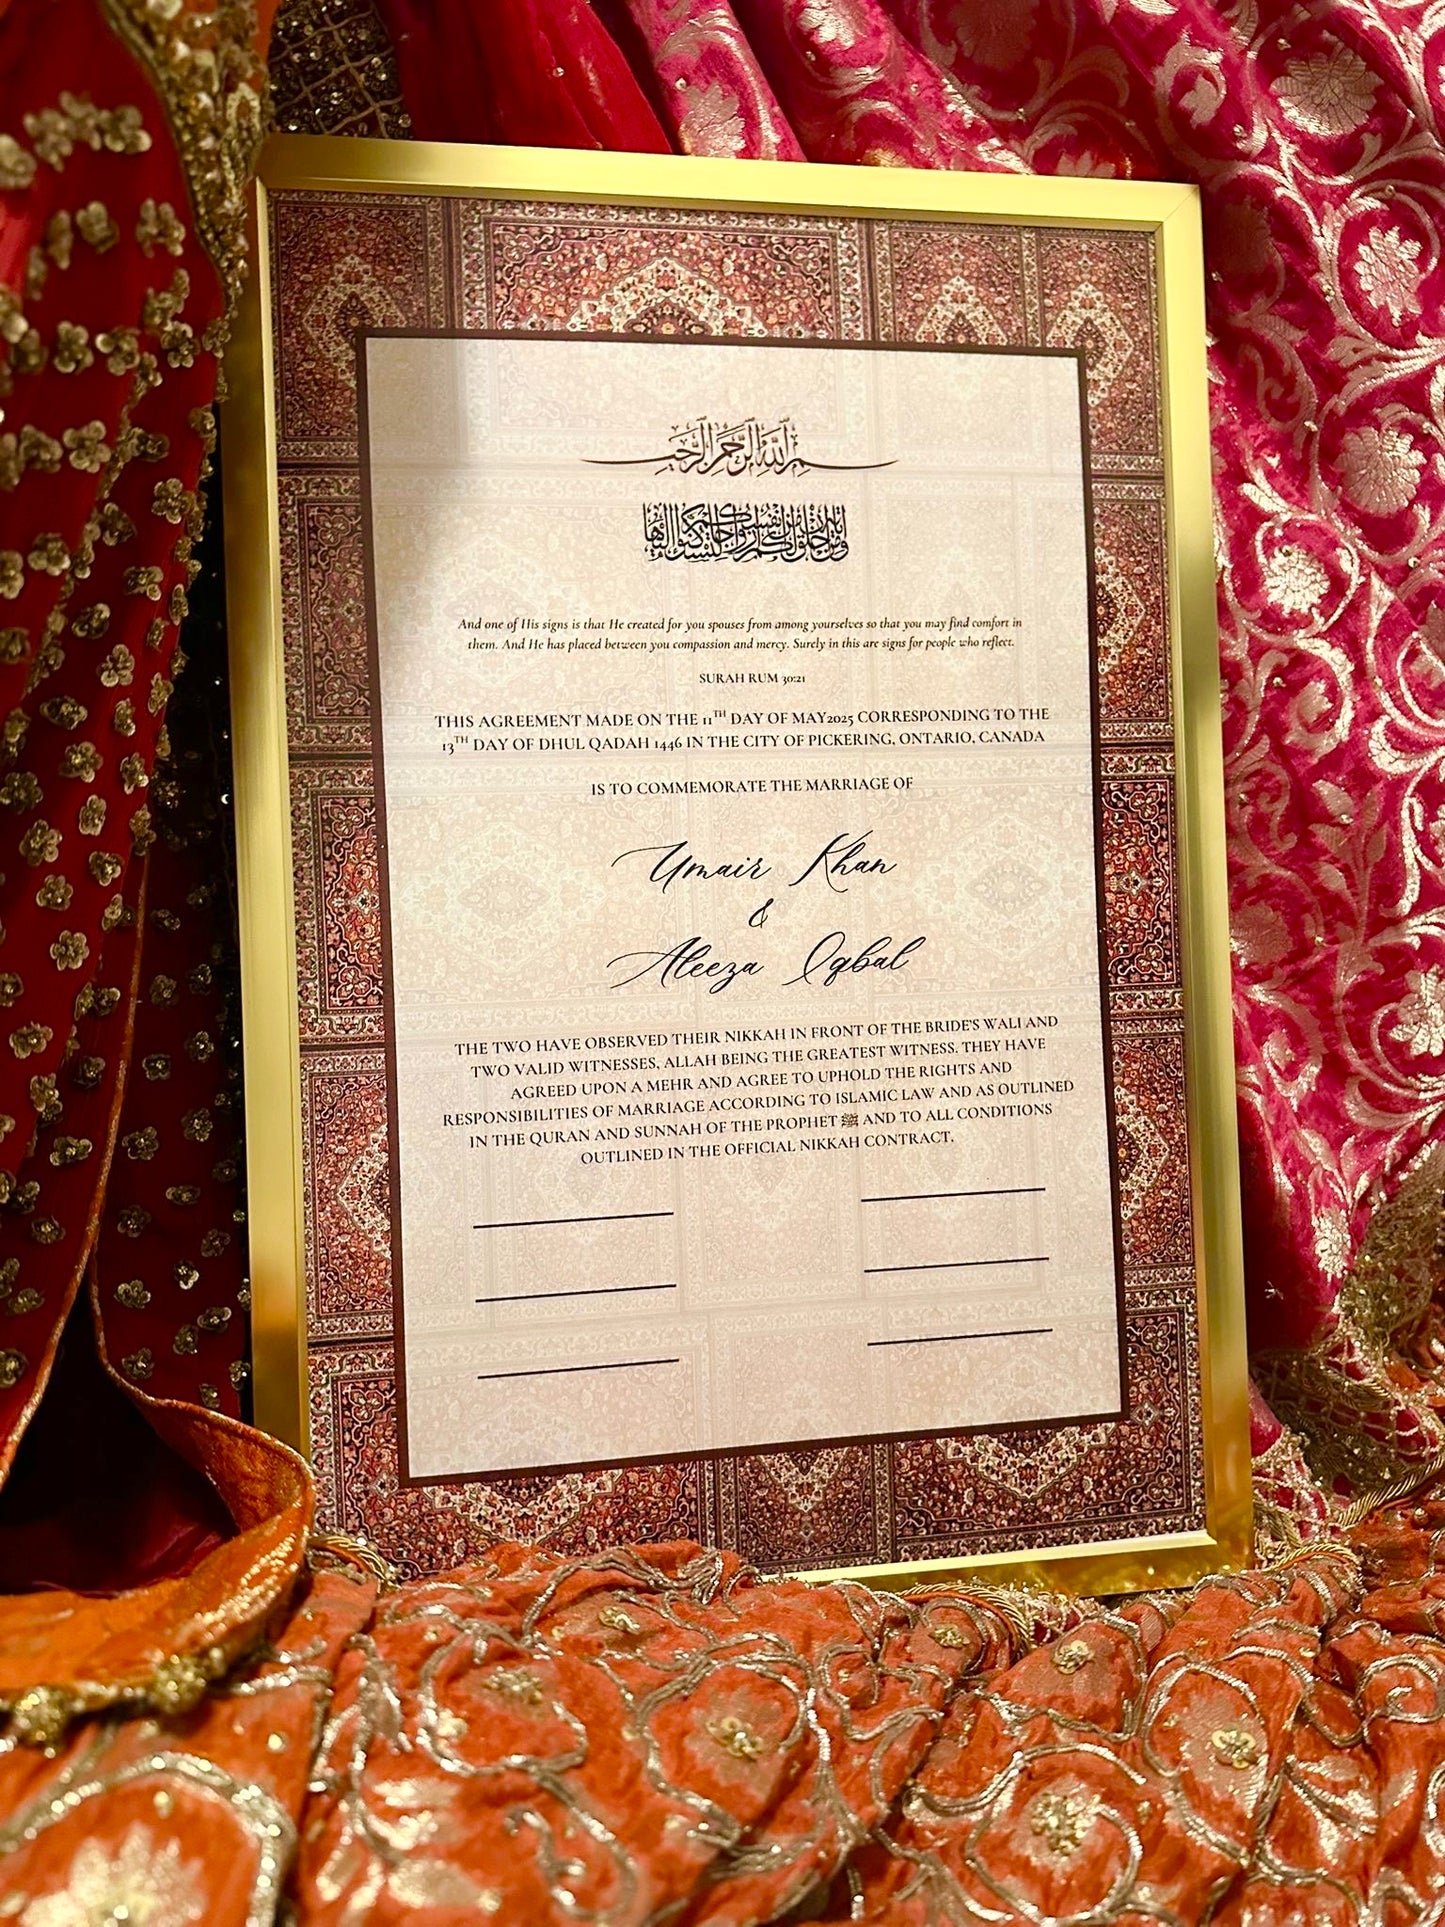 بسم الله الرحمن الرحيم
ومن آياته أن خلق لكم من أنفسكم أزواجا لتسكنوا إليها
And one of His signs is that He created for you spouses from among yourselves so that you may find comfort in
them. And He has placed between you compassion and mercy. Surely in this are signs for people who reflect.
SURAH RUM 30:21
THIS AGREEMENT MADE ON THE 11TH DAY OF MAY2025 CORRESPONDING TO THE
13TH DAY OF DHUL QADAH 1446 IN THE CITY OF PICKERING, ONTARIO, CANADA
IS TO COMMEMORATE THE MARRIAGE OF
Umair Khan
&
Aleeza Iqbal
THE TWO HAVE OBSERVED THEIR NIKKAH IN FRONT OF THE BRIDE'S WALI AND
TWO VALID WITNESSES, ALLAH BEING THE GREATEST WITNESS. THEY HAVE
AGREED UPON A MEHR AND AGREE TO UPHOLD THE RIGHTS AND
RESPONSIBILITIES OF MARRIAGE ACCORDING TO ISLAMIC LAW AND AS OUTLINED
IN THE QURAN AND SUNNAH OF THE PROPHET ﷺ AND TO ALL CONDITIONS
OUTLINED IN THE OFFICIAL NIKKAH CONTRACT.